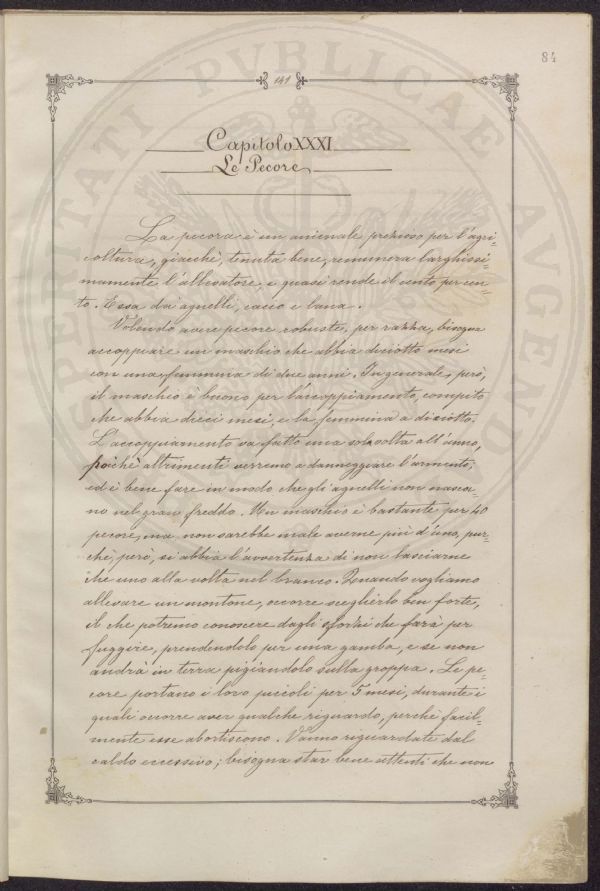 84
141
Capitolo XXXI
Le Pecore
La pecora è un animale prezioso per l'agri-
coltura, giacchè, tenuta bene, remunera larghissi-
mamente l'allevatore, e quasi rende il cento per cen-
to. Essa dai agnelli, cacio e lana.
Volendo avere pecore robuste, per razza, bisogna
accoppiare un maschio che abbia diciotto mesi
con una femmina di due anni. In generale, però,
il maschio è buono per l'accoppiamento, compito
che abbia dieci mesi, e la femmina a diciotto.
L'accoppiamento va fatto una sola volta all'anno,
poichè altrimenti verremo a danneggiare l'armento;
ed è bene fare in modo che gli agnelli non nasca-
no nel gran freddo. Un maschio è bastante per 40
pecore, ma non sarebbe male averne più d'uno, pur-
chè, però, si abbia l'avvertenza di non lasciarne
che uno alla volta nel branco. Quando vogliamo
allevare un montone, occorre sceglierlo ben forte,
il che potremo conoscere dagli sforzi che farà per
fuggire, prendendolo per una gamba, e se non
andrà in terra pigiandolo sulla groppa. Le pe-
core portano i loro piccoli per 5 mesi, durante i
quali occorre aver qualche riguardo, perchè facil-
mente esse abortiscono. Vanno riguardate dal
caldo eccessivo; bisogna star bene attenti che non
SPERITATI PVBLICAE AVGEND